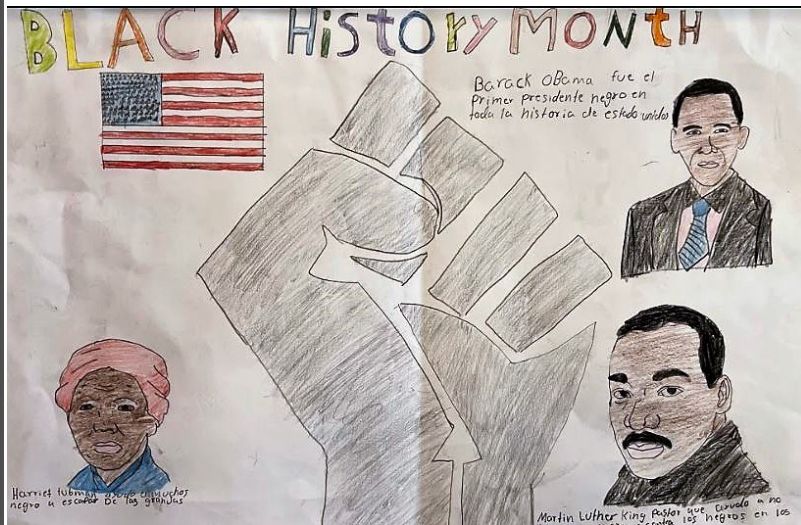 BLACK HiStory MONTH
Barack Obama fue el
Primer presidente negro en
toda la historia de estado unidos
Harriet tubman muchos
negro a escapar De las granjas
Martin Luther King Pastor que a no
los negros en los